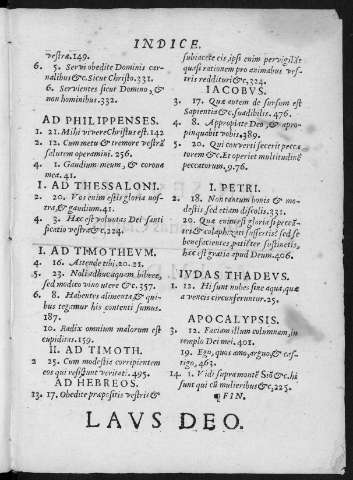 INDICE.
vestræ.149.
6. 5. Servi obedite Dominis carnalibus &c. Sicut Christo.331.
6. Servientes sicut Domino, & non hominibus.332.
AD PHILIPPENSES.
1. 21. Mihi vivere Christus est.142
2. 12. Cum metu & tremore vestrã salutem operamini.256.
4. 1. Gaudium meum, & corona mea.41.
I. AD THESSALONI.
2. 20. Vos enim estis gloria nostra, & gaudium.41.
4. 3. Hæc est voluntas Dei sanctificatio vestra &c,224.
I. AD TIMOTHEVM.
4. 16. Attende tibi.20.21.
5. 23. Noli adhuc aquam bibere, sed modico vino utere &c.357.
6. 8. Habentes alimenta, & quibus tegamur his contenti sumus.
187.
10. Radix omnium malorum est cupiditas.159.
II. AD TIMOTH.
2 25. Cum modestia corripientem eos qui resistunt veritati.495.
AD HEBREOS.
13. 17. Obedite præpositis vestris &
subiacete eis, ipsi enim pervigilãt quasi rationem pro animabus vestris reddituri &c,324.
IACOBVS.
3. 17. Quæ autem de sursum est Sapientia &c, suadibilis.476.
4. 8. Appropiate Deo, & appropinquabit vobis,389.
5. 20. Qui converti fecerit peccatorem &c. Et operiet multitudinẽ peccatorum.9.76.
I. PETRI.
2. 18. Non tantum bonis & modestis, sed etiam discolis.331.
20. Quæ enim est gloria si peccãtes & colaphizati suffertis? sed se benefacientes patiẽter sustinetis, hæc est gratia apud Deum.406.
IVDAS THADEVS.
1. 12. Hi sunt nubes sine aqua, quæ a ventis circunferuntur.25.
APOCALYPSIS.
3. 12. Faciam illum columnam, in templo Dei mei.401.
19. Ego, quos amo, arguo, & castigo,463.
14. 1. Vidi supra montẽ Siõ &c. hi sunt qui cũ mulieribus &c,225.
¶ FIN.
LAVS DEO.